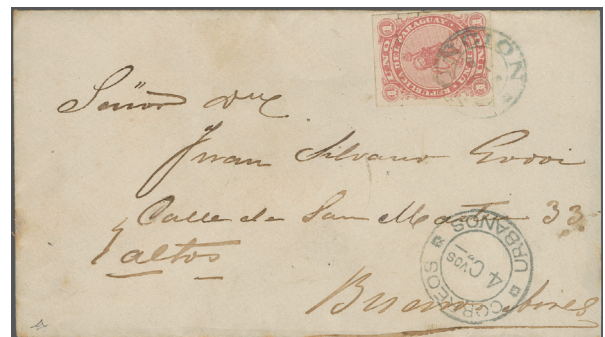 UNO UNO
REPUBLICA DEL PARAGUAY
1 1
Señor Dn
Juan Silvano Godoi
Calle de San Martin 33
altos
CORREOS URBANOS
4 Cvos
Buenos Aires